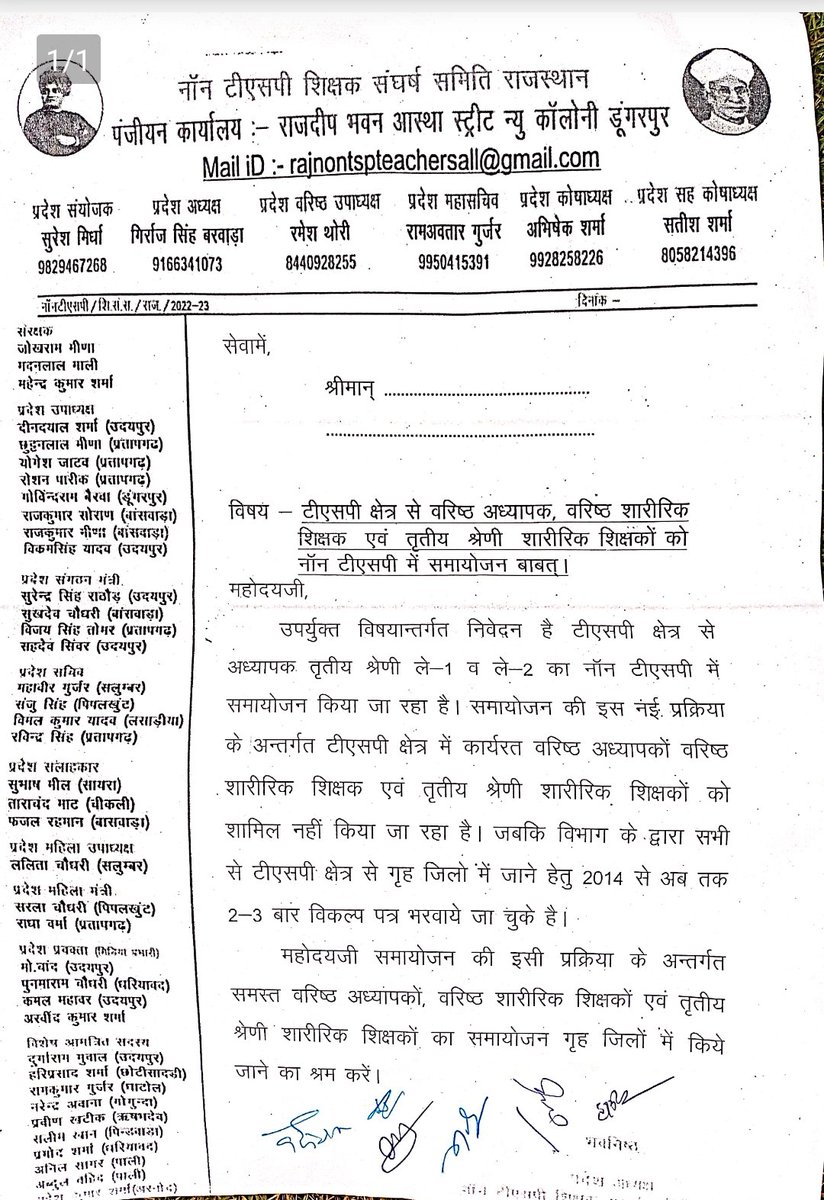 1/1
नॉन टीएसपी शिक्षक संघर्ष समिति राजस्थान
पंजीयन कार्यालय :– राजदीप भवन आस्था स्ट्रीट न्यु कॉलोनी डूंगरपुर
Mail iD :- rajnontspteachersall@gmail.com
प्रदेश संयोजक प्रदेश अध्यक्ष प्रदेश वरिष्ठ उपाध्यक्ष प्रदेश महासचिव प्रदेश कोषाध्यक्ष प्रदेश सह कोषाध्यक्ष
सुरेश मिर्धा गिर्राज सिंह बरवाड़ा रमेश थोरी रामअवतार गुर्जर अभिषेक शर्मा सतीश शर्मा
9829467268 9166341073 8440928255 9950415391 9928258226 8058214396
नॉनटीएसपी/शि.सं.स./राज./2022-23 दिनांक –
संरक्षक
जोखराम मीणा
मदनलाल माली
महेन्द्र कुमार शर्मा
प्रदेश उपाध्यक्ष
दीनदयाल शर्मा (उदयपुर)
छुट्टनलाल मीणा (प्रतापगढ)
योगेश जाटव (प्रतापगढ़)
रोशन पारीक (प्रतापगढ़)
गोविन्दराम बैरवा (डूंगरपुर)
राजकुमार सोराण (बांसवाड़ा)
राजकुमार मीणा (बांसवाड़ा)
विकमसिंह यादव (उदयपुर)
प्रदेश संगठन मंत्री
सुरेन्द्र सिंह राठौड़ (उदयपुर)
सुखदेव चौधरी (बांसवाड़ा)
विजय सिंह तोमर (प्रतापगढ़)
सहदेव सिंवर (उदयपुर)
प्रदेश सचिव
महावीर गुर्जर (सलुम्बर)
संजु सिंह (पिपलखुंट)
विमल कुमार यादव (लसाड़ीया)
रविन्द्र सिंह (प्रतापगढ़)
प्रदेश सलाहकार
सुभाष मील (सायरा)
ताराचंद भाट (चीकली)
फजल रहमान (बासवाड़ा)
प्रदेश महिला उपाध्यक्ष
ललिता चौधरी (सलुम्बर)
प्रदेश महिला मंत्री
सरला चौधरी (पिपलखुंट)
राधा वर्मा (प्रतापगढ़)
प्रदेश प्रवक्ता (मिडिया प्रभारी)
मो.चांद (उदयपुर)
पुनमाराम चौधरी (धरियावद)
कमल महावर (उदयपुर)
अरवींद कुमार शर्मा
विशेष आमंत्रित सदस्य
दुर्गाराम मुवाल (उदयपुर)
हरिप्रसाद शर्मा (छोटीसादडी)
रामकुमार गुर्जर (घाटोल)
नरेन्द्र अवाना (गोगुन्दा)
प्रवीण खटीक (ऋषभदेव)
सलीम खान (पिन्डवाडा)
प्रमोद शर्मा (धरियावद)
अनिल सागर (पाली)
अब्दुल वहिद (पाली)
सेवामें,
श्रीमान् ........................................
....................................................
विषय – टीएसपी क्षेत्र से वरिष्ठ अध्यापक, वरिष्ठ शारीरिक
शिक्षक एवं तृतीय श्रेणी शारीरिक शिक्षकों को
नॉन टीएसपी में समायोजन बाबत्।
महोदयजी,
उपर्युक्त विषयान्तर्गत निवेदन है टीएसपी क्षेत्र से
अध्यापक तृतीय श्रेणी ले–1 व ले–2 का नॉन टीएसपी में
समायोजन किया जा रहा है। समायोजन की इस नई प्रक्रिया
के अन्तर्गत टीएसपी क्षेत्र में कार्यरत वरिष्ठ अध्यापकों वरिष्ठ
शारीरिक शिक्षक एवं तृतीय श्रेणी शारीरिक शिक्षकों को
शामिल नहीं किया जा रहा है। जबकि विभाग के द्वारा सभी
से टीएसपी क्षेत्र से गृह जिलो में जाने हेतु 2014 से अब तक
2–3 बार विकल्प पत्र भरवाये जा चुके है।
महोदयजी समायोजन की इसी प्रक्रिया के अन्तर्गत
समस्त वरिष्ठ अध्यापकों, वरिष्ठ शारीरिक शिक्षकों एवं तृतीय
श्रेणी शारीरिक शिक्षकों का समायोजन गृह जिलों में किये
जाने का श्रम करें।
भवनिष्ठ
प्रदेश अध्यक्ष
नॉन टीएसपी शिक्षक